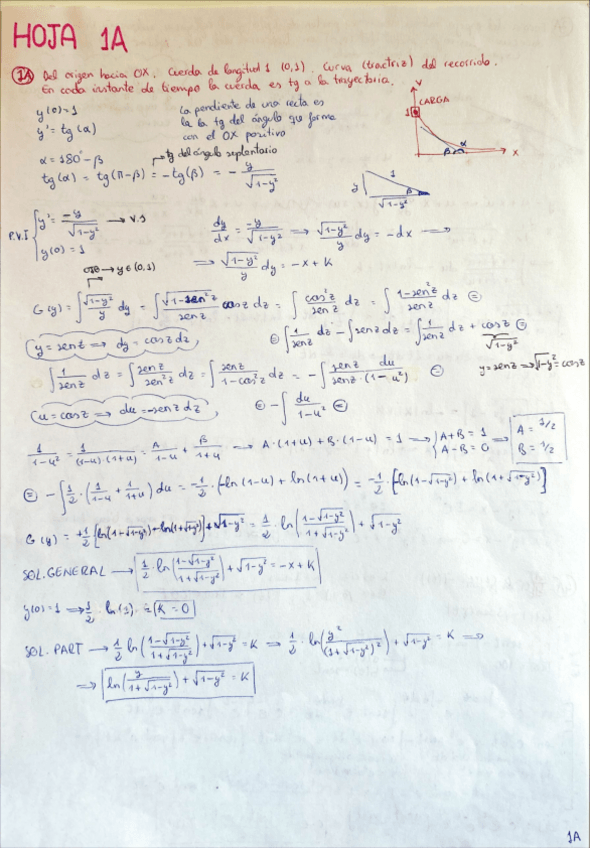 HOJA 1A
1A Del origen hacia OX. Cuerda de longitud 1 (0,1). Curva (tractriz) del recorrido.
En cada instante de tiempo la cuerda es tg a la trayectoria.
y(0)=1
y' = tg(α)
La pendiente de una recta es
la la tg del ángulo que forma
con el OX positivo
Y
1
CARGA
α
β
X
α = 180° - β
tg del ángulo suplentario
tg(α) = tg(π-β) = -tg(β) = - y/√(1-y²)
1
y
β
√(1-y²)
P.V.I { y' = -y/√(1-y²) → V.S
y(0) = 1
dy/dx = -y/√(1-y²) ⇒ √(1-y²)/y dy = -dx ⇒
⇒ √(1-y²)/y dy = -x + K
→ y ∈ (0,1)
G(y) = ∫ √(1-y²)/y dy = ∫ √(1-sen²z)/sen z cos z dz = ∫ cos²z/sen z dz = ∫ (1-sen²z)/sen z dz =
y = sen z ⇒ dy = cos z dz
= ∫ 1/sen z dz - ∫ sen z dz = ∫ 1/sen z dz + cos z =
√(1-y²)
y = sen z ⇒ √(1-y²) = cos z
∫ 1/sen z dz = ∫ sen z/sen²z dz = ∫ sen z/(1-cos²z) dz = -∫ sen z/sen z · du/(1-u²) =
u = cos z ⇒ du = -sen z dz
= -∫ du/(1-u²) =
1/(1-u²) = 1/((1-u)·(1+u)) = A/(1-u) + B/(1+u) → A·(1+u) + B·(1-u) = 1 → { A+B = 1 A-B = 0 ⇒ A = 1/2 B = 1/2
= -∫ 1/2 · (1/(1-u) + 1/(1+u)) du = -1/2 · (-ln(1-u) + ln(1+u)) = -1/2 · [-ln(1-√(1-y²)) + ln(1+√(1-y²))]
G(y) = +1/2 [ln(1-√(1-y²)) - ln(1+√(1-y²))] + √(1-y²) = 1/2 · ln((1-√(1-y²))/(1+√(1-y²))) + √(1-y²)
SOL. GENERAL → 1/2 · ln((1-√(1-y²))/(1+√(1-y²))) + √(1-y²) = -x + K
y(0) = 1 ⇒ 1/2 · ln(1) = K = 0
SOL. PART → 1/2 ln((1-√(1-y²))/(1+√(1-y²))) + √(1-y²) = K ⇒ 1/2 · ln(y²/(1+√(1-y²))²) + √(1-y²) = K ⇒
⇒ ln(y/(1+√(1-y²))) + √(1-y²) = K
1A